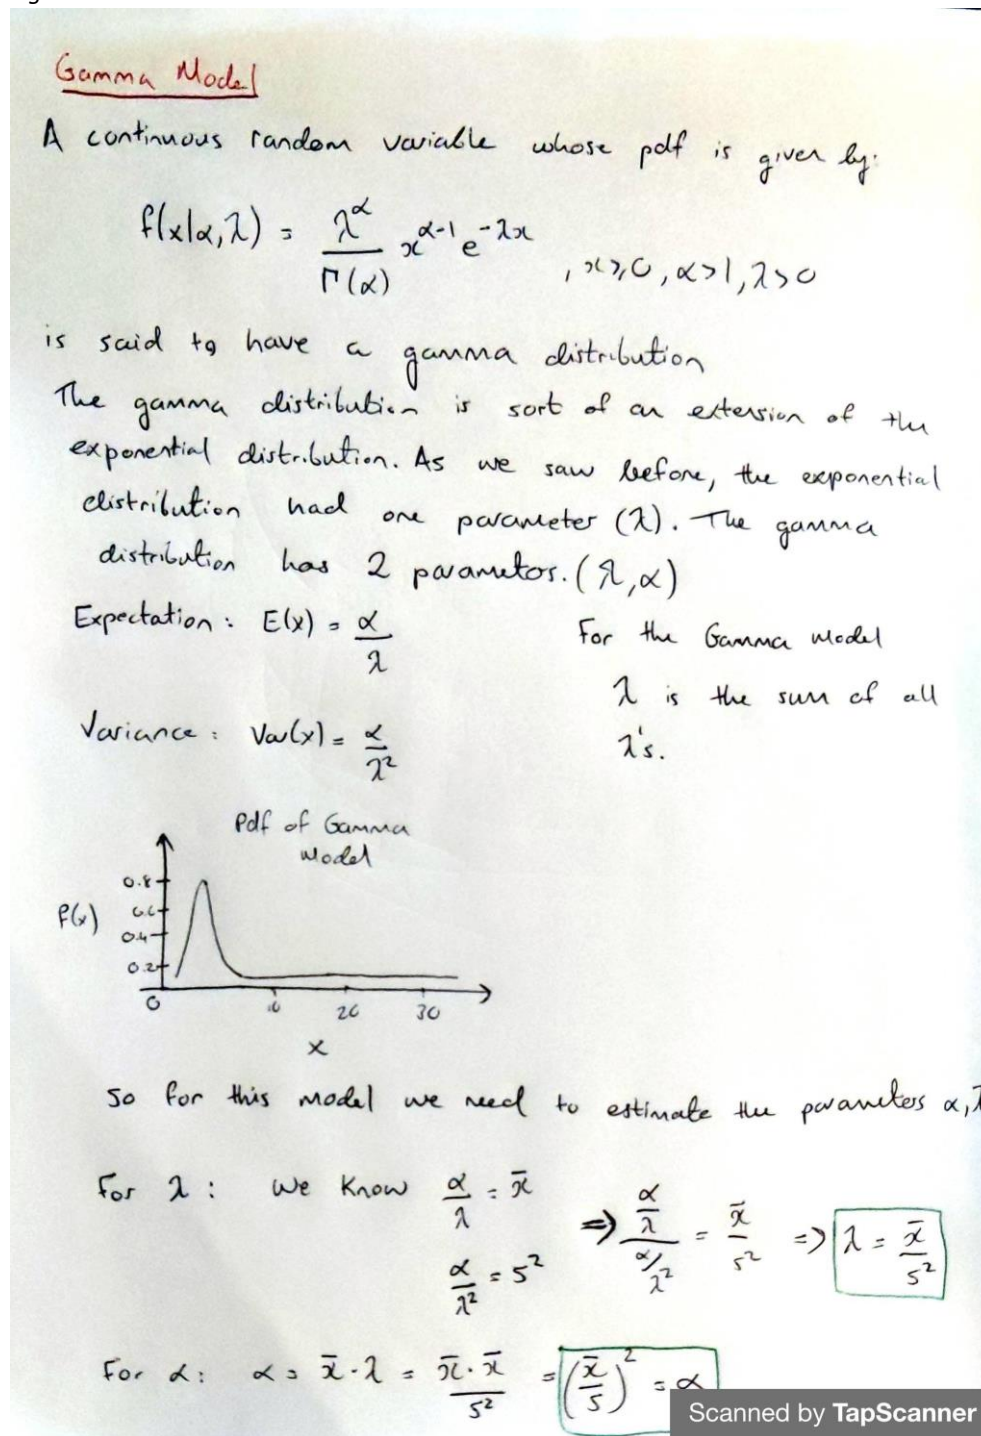 Gamma Model
A continuous random variable whose pdf is given by:
f(x|α,λ) = λ^α / Γ(α) x^(α-1) e^(-λx) , x≥0, α>1, λ>0
is said to have a gamma distribution
The gamma distribution is sort of an extension of the
exponential distribution. As we saw before, the exponential
distribution had one parameter (λ). The gamma
distribution has 2 parametos. (λ,α)
Expectation: E(x) = α/λ
For the Gamma Model
λ is the sum of all
λ's.
Variance: Var(x) = α/λ²
Pdf of Gamma
Model
f(x)
0.8
0.6
0.4
0.2
0 10 20 30
x
So for this model we need to estimate the parameters α, λ
For λ: We Know α/λ = x̄
α/λ² = s²
=> (α/λ)/(α/λ²) = x̄/s² => λ = x̄/s²
For α: α = x̄·λ = x̄·x̄/s² = (x̄/s)² = α
Scanned by TapScanner